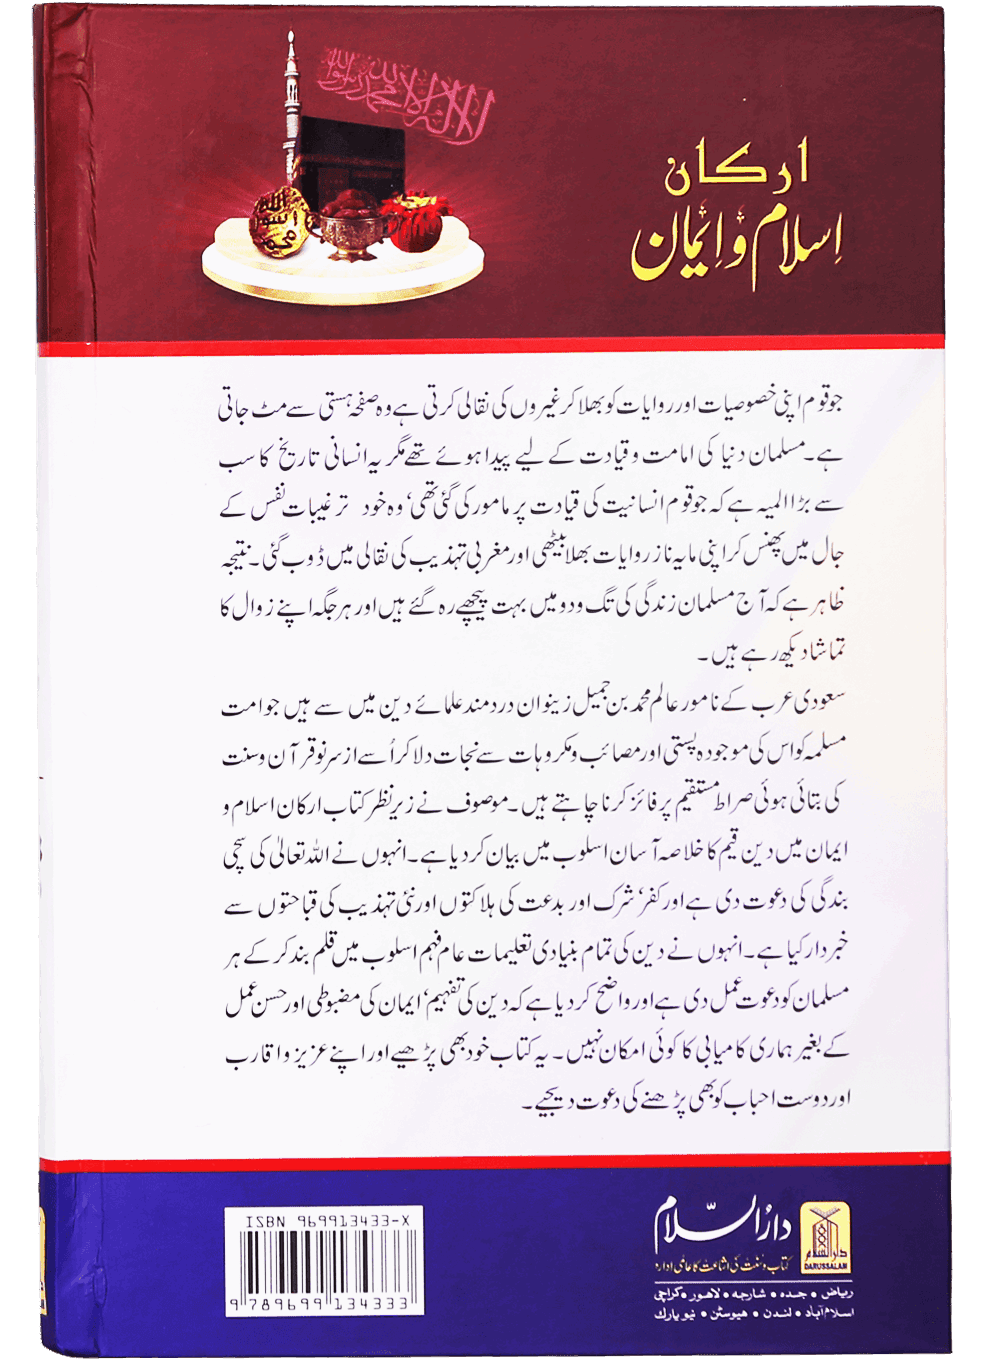 لا اله الا الله محمد رسول الله
ارکان
اِسلام و اِیمان
جو قوم اپنی خصوصیات اور روایات کو بھلا کر غیروں کی نقالی کرتی ہے وہ صفحہ ہستی سے مٹ جاتی
ہے۔ مسلمان دنیا کی امامت و قیادت کے لیے پیدا ہوئے تھے مگر یہ انسانی تاریخ کا سب
سے بڑا المیہ ہے کہ جو قوم انسانیت کی قیادت پر مامور کی گئی تھی’ وہ خود ترغیبات نفس کے
جال میں پھنس کر اپنی مایہ ناز روایات بھلا بیٹھی اور مغربی تہذیب کی نقالی میں ڈوب گئی۔ نتیجہ
ظاہر ہے کہ آج مسلمان زندگی کی تگ ودو میں بہت پیچھے رہ گئے ہیں اور ہر جگہ اپنے زوال کا
تماشا دیکھ رہے ہیں۔
سعودی عرب کے نامور عالم محمد بن جمیل زینو ان دردمند علمائے دین میں سے ہیں جو امت
مسلمہ کو اس کی موجودہ پستی اور مصائب و مکروہات سے نجات دلا کر اُسے ازسرنو قرآن وسنت
کی بتائی ہوئی صراط مستقیم پر فائز کرنا چاہتے ہیں۔ موصوف نے زیرنظر کتاب ارکان اسلام و
ایمان میں دین قیم کا خلاصہ آسان اسلوب میں بیان کر دیا ہے۔ انہوں نے اللہ تعالیٰ کی سچی
بندگی کی دعوت دی ہے اور کفر’ شرک اور بدعت کی ہلاکتوں اور نئی تہذیب کی قباحتوں سے
خبردار کیا ہے۔ انہوں نے دین کی تمام بنیادی تعلیمات عام فہم اسلوب میں قلم بند کر کے ہر
مسلمان کو دعوت عمل دی ہے اور واضح کر دیا ہے کہ دین کی تفہیم’ ایمان کی مضبوطی اور حسن عمل
کے بغیر ہماری کامیابی کا کوئی امکان نہیں۔ یہ کتاب خود بھی پڑھیے اور اپنے عزیز و اقارب
اور دوست احباب کو بھی پڑھنے کی دعوت دیجیے۔
دارُالسّلام
کتاب و سنّت کی اشاعت کا عالمی ادارہ
ریاض • جدہ • شارجہ • لاہور • کراچی
اسلام آباد • لندن • ھیوسٹن • نیو یارک
دارالسلام
DARUSSALAM
ISBN 969913433-X
9 789699 134333